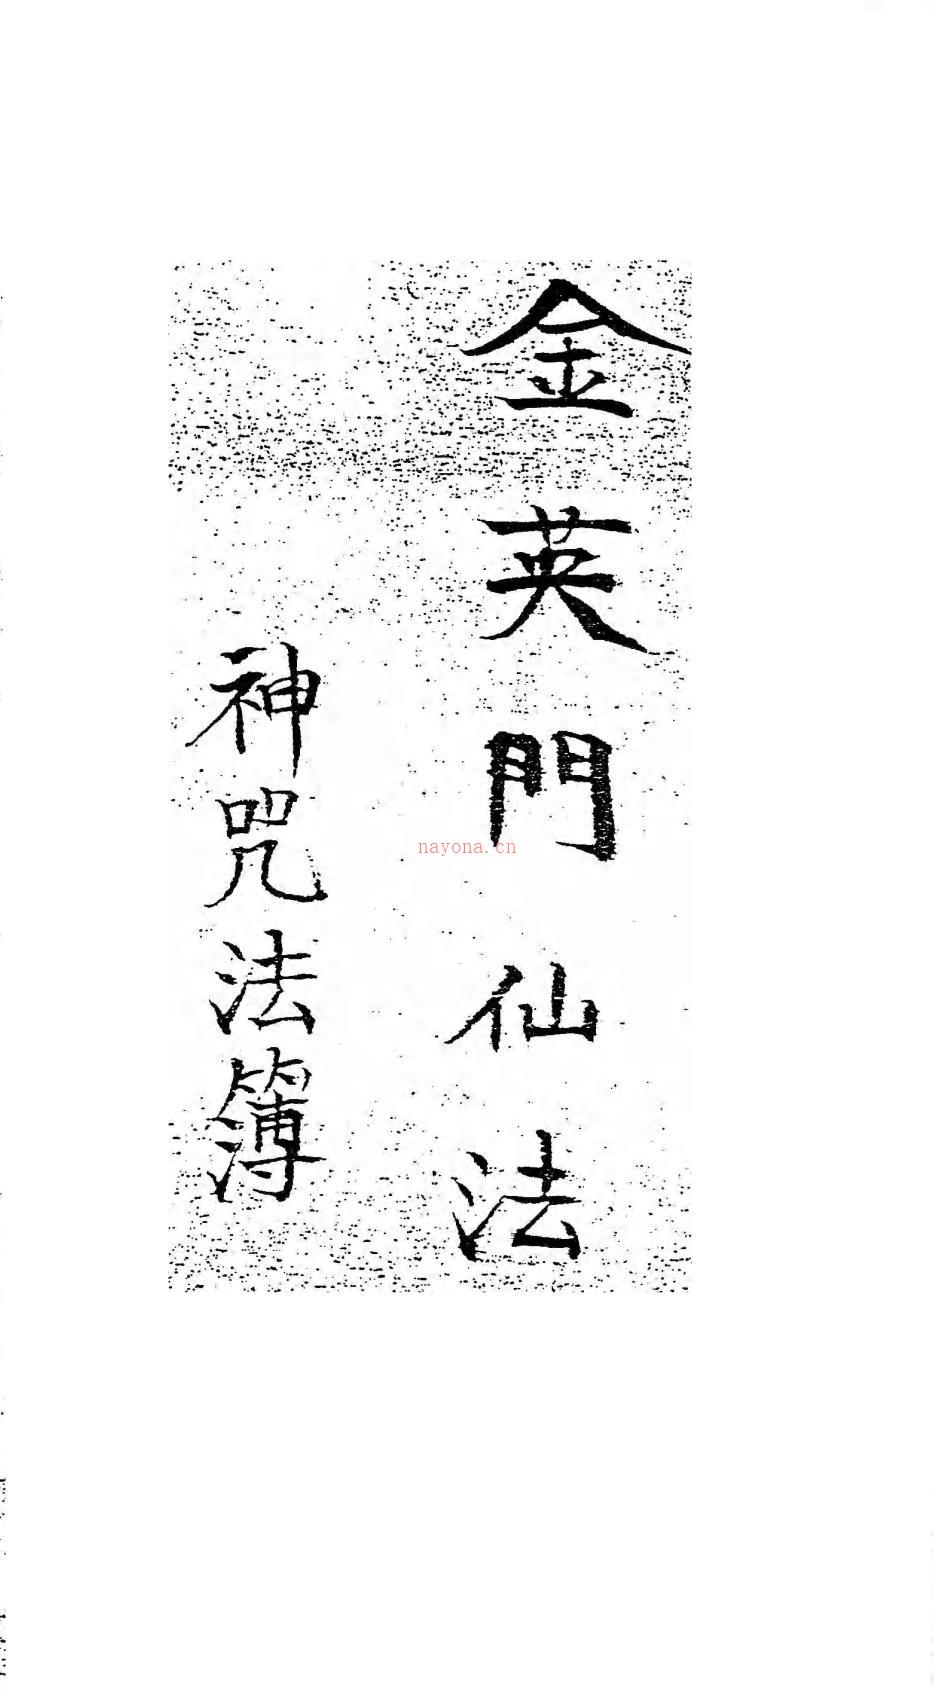 金英門仙法
神咒法簿
nayona.cn